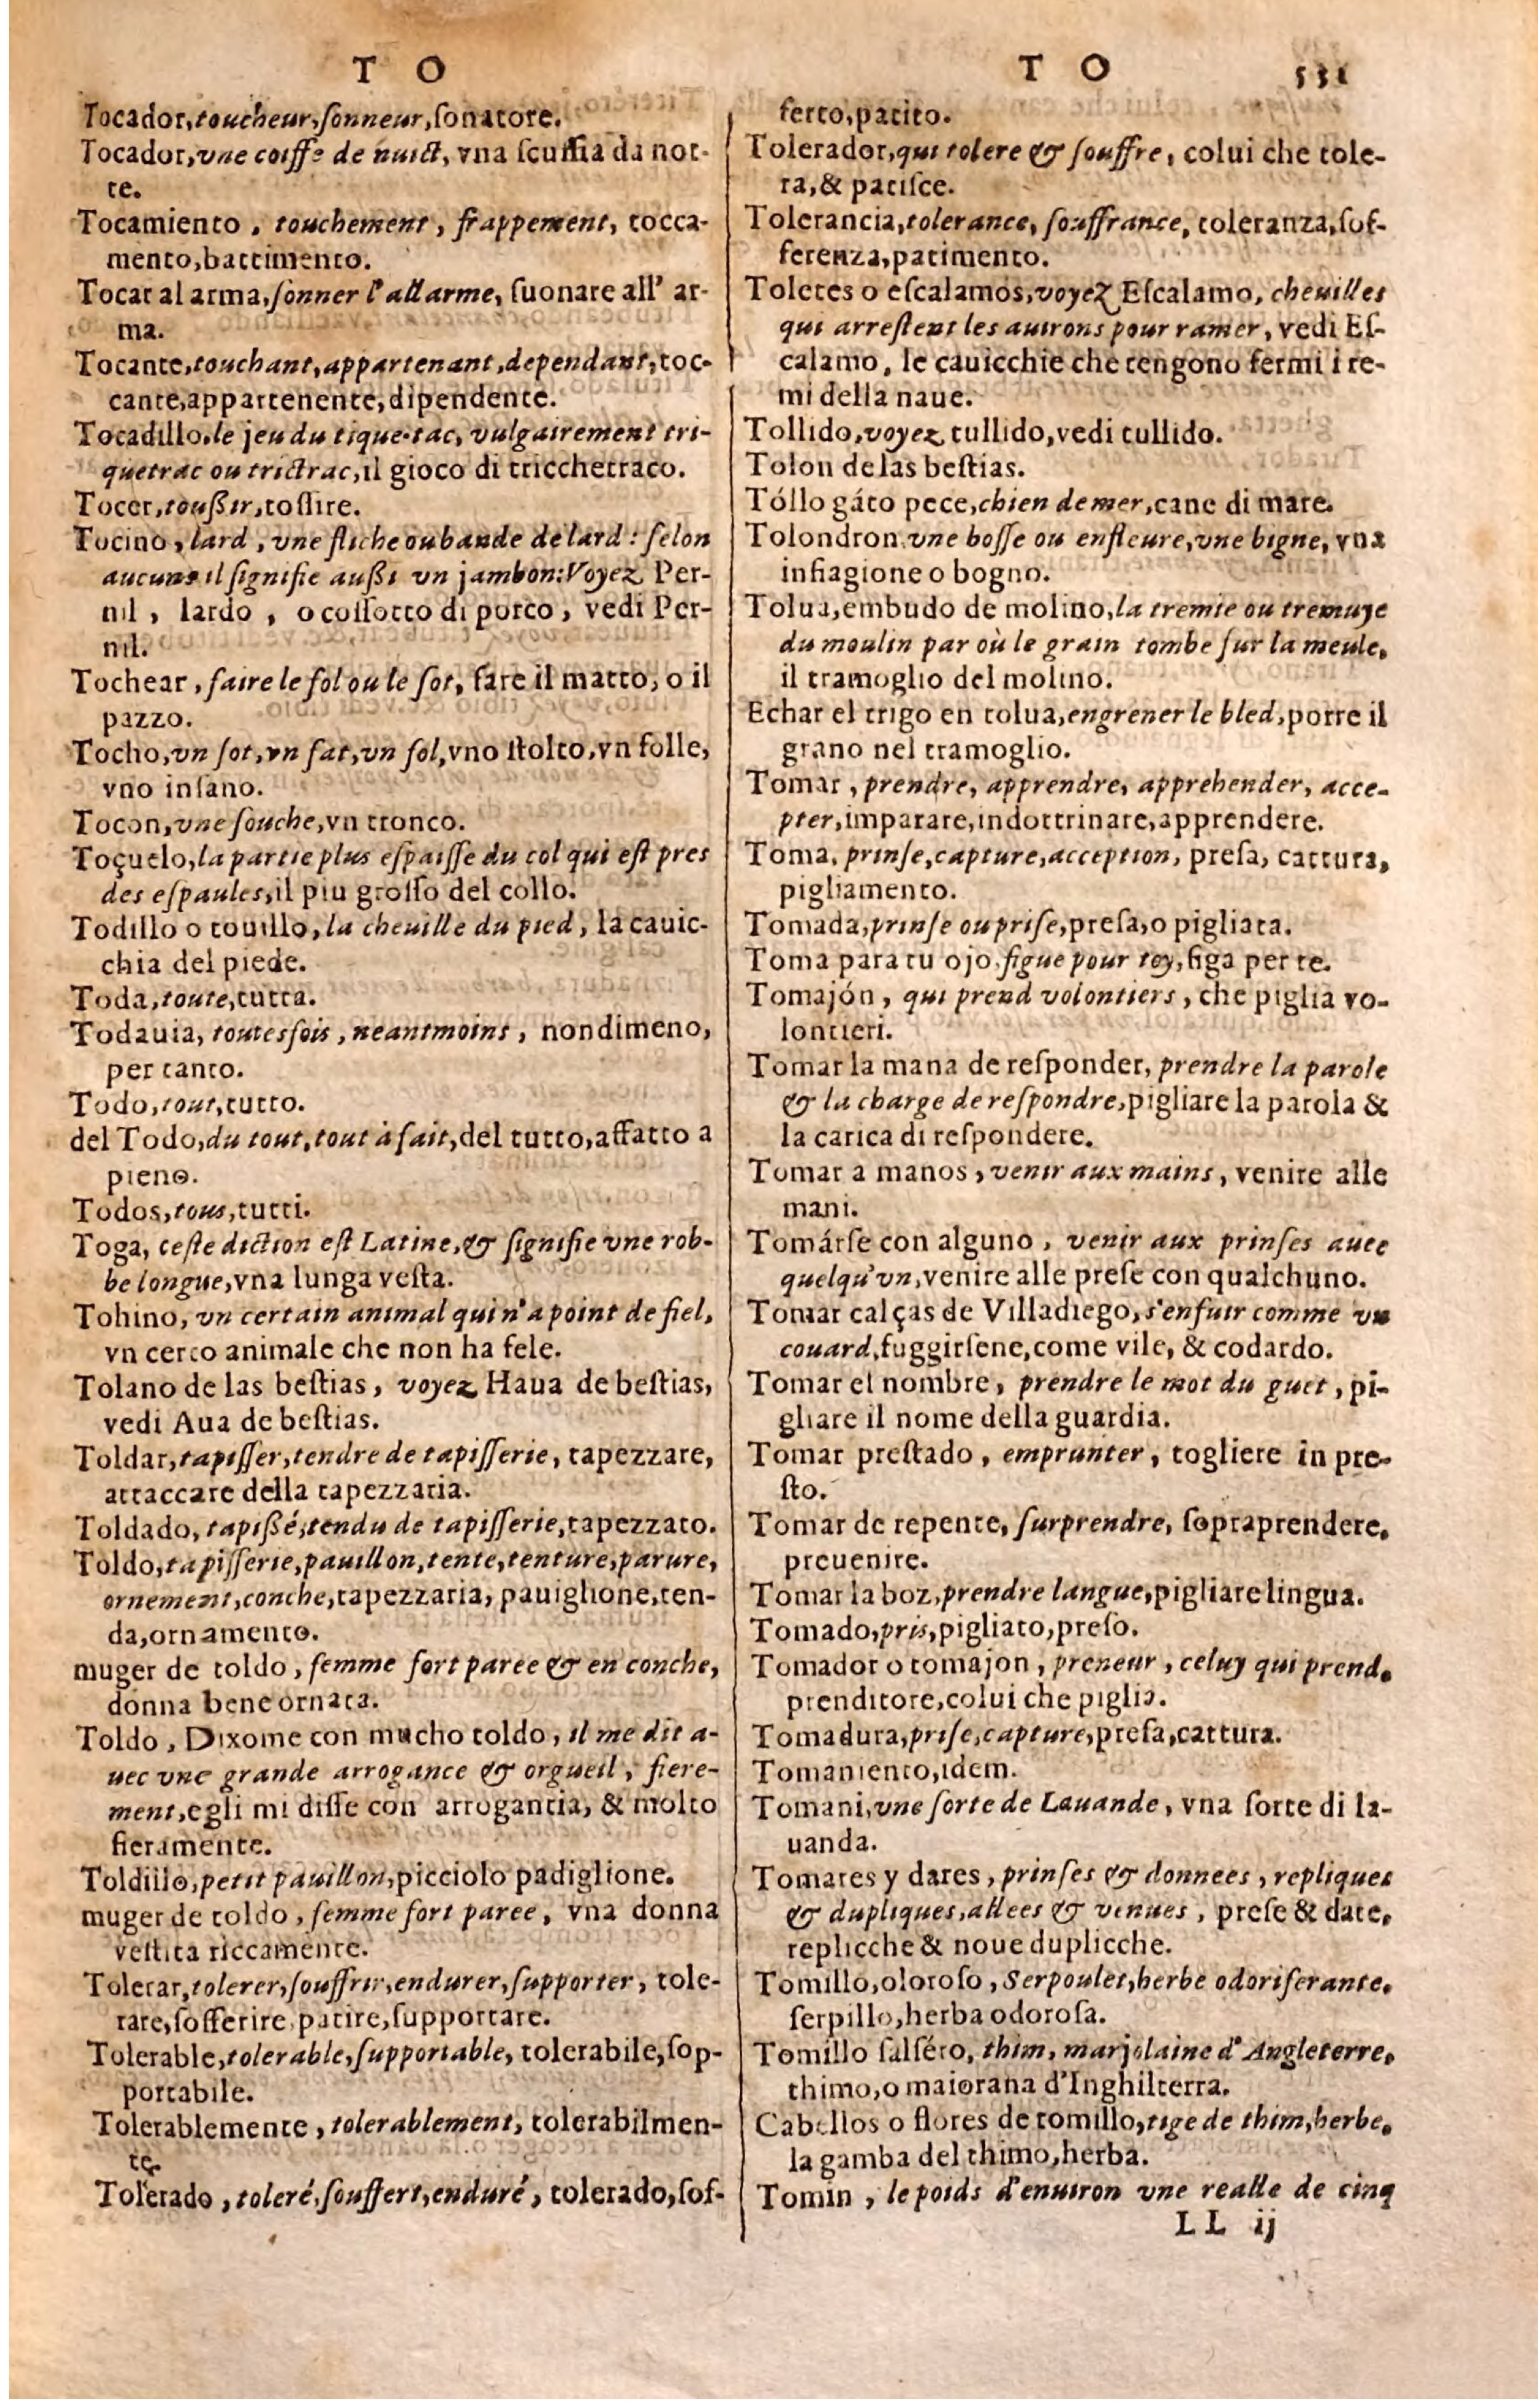 T O
Tocador, toucheur, ſonneur, ſonatore.
Tocador, vne coiffe de nuict, vna ſcuffia da not-
te.
Tocamiento, touchement, frappement, tocca-
mento, battimento.
Tocar al arma, ſonner l'allarme, ſuonare all' ar-
ma.
Tocante, touchant, appartenant, dependant, toc-
cante, appartenente, dipendente.
Tocadillo, le jeu du tique-tac, vulgairement tri-
quetrac ou trictrac, il gioco di tricchetraco.
Tocer, toußir, toſſire.
Tocino, lard, vne fliche ou bande de lard: ſelon
aucuns il ſignifie außi vn jambon: Voyez Per-
nil, lardo, o coſſotto di porco, vedi Per-
nil.
Tochear, faire le fol ou le ſot, fare il matto, o il
pazzo.
Tocho, vn ſot, vn fat, vn fol, vno ſtolto, vn folle,
vno inſano.
Tocon, vne ſouche, vn tronco.
Toçuelo, la partie plus eſpaiſſe du col qui eſt pres
des eſpaules, il piu groſſo del collo.
Todillo o touillo, la cheuille du pied, la cauic-
chia del piede.
Toda, toute, tutta.
Todauia, toutesfois, neantmoins, nondimeno,
per tanto.
Todo, tout, tutto.
del Todo, du tout, tout à fait, del tutto, affatto a
pieno.
Todos, tous, tutti.
Toga, ceſte diction eſt Latine, & ſignifie vne rob-
be longue, vna lunga veſta.
Tohino, vn certain animal qui n'a point de fiel,
vn certo animale che non ha fele.
Tolano de las beſtias, voyez Haua de beſtias,
vedi Aua de beſtias.
Toldar, tapiſſer, tendre de tapiſſerie, tapezzare,
attaccare della tapezzaria.
Toldado, tapißé, tendu de tapiſſerie, tapezzato.
Toldo, tapiſſerie, pauillon, tente, tenture, parure,
ornement, conche, tapezzaria, pauiglione, ten-
da, ornamento.
muger de toldo, femme fort paree & en conche,
donna bene ornata.
Toldo, Dixome con mucho toldo, il me dit a-
uec vne grande arrogance & orgueil, fiere-
ment, egli mi diſſe con arrogantia, & molto
fieramente.
Toldillo, petit pauillon, picciolo padiglione.
muger de toldo, femme fort paree, vna donna
veſtita riccamente.
Tolerar, tolerer, ſouffrir, endurer, ſupporter, tole-
rare, ſofferire, patire, ſupportare.
Tolerable, tolerable, ſupportable, tolerabile, ſop-
portabile.
Tolerablemente, tolerablement, tolerabilmen-
te.
Tolerado, toleré, ſouffert, enduré, tolerado, ſof-
T O 531
ferto, patito.
Tolerador, qui tolere & ſouffre, colui che tole-
ra, & patiſce.
Tolerancia, tolerance, ſouffrance, toleranza, ſof-
ferenza, patimento.
Toletes o eſcalamos, voyez Eſcalamo, cheuilles
qui arreſtent les auirons pour ramer, vedi Eſ-
calamo, le cauicchie che tengono fermi i re-
mi della naue.
Tollido, voyez tullido, vedi tullido.
Tolon de las beſtias.
Tóllo gáto pece, chien de mer, cane di mare.
Tolondron, vne boſſe ou enfleure, vne bigne, vna
infiagione o bogno.
Tolua, embudo de molino, la tremie ou tremuye
du moulin par où le grain tombe ſur la meule,
il tramoglio del molino.
Echar el trigo en tolua, engrener le bled, porre il
grano nel tramoglio.
Tomar, prendre, apprendre, apprehender, acce-
pter, imparare, indottrinare, apprendere.
Toma, prinſe, capture, acception, preſa, cattura,
pigliamento.
Tomada, prinſe ou priſe, preſa, o pigliata.
Toma para tu ojo, figue pour toy, figa per te.
Tomajón, qui prend volontiers, che piglia vo-
lontieri.
Tomar la mana de reſponder, prendre la parole
& la charge de reſpondre, pigliare la parola &
la carica di reſpondere.
Tomar a manos, venir aux mains, venire alle
mani.
Tomárſe con alguno, venir aux prinſes auec
quelqu'vn, venire alle preſe con qualchuno.
Tomar calças de Villadiego, s'enfuir comme vn
couard, fuggirſene, come vile, & codardo.
Tomar el nombre, prendre le mot du guet, pi-
gliare il nome della guardia.
Tomar preſtado, emprunter, togliere in pre-
ſto.
Tomar de repente, ſurprendre, ſopraprendere,
preuenire.
Tomar la boz, prendre langue, pigliare lingua.
Tomado, pris, pigliato, preſo.
Tomador o tomajon, preneur, celuy qui prend,
prenditore, colui che piglia.
Tomadura, priſe, capture, preſa, cattura.
Tomamiento, idem.
Tomani, vne ſorte de Lauande, vna ſorte di la-
uanda.
Tomares y dares, prinſes & donnees, repliques
& dupliques, allees & venues, preſe & date,
replicche & noue duplicche.
Tomillo, oloroſo, Serpoulet, herbe odoriferante,
ſerpillo, herba odoroſa.
Tomillo ſalſéro, thim, marjolaine d'Angleterre,
thimo, o maiorana d'Inghilterra.
Cabellos o flores de tomillo, tige de thim, herbe,
la gamba del thimo, herba.
Tomin, le poids d'enuiron vne realle de cinq
LL ij